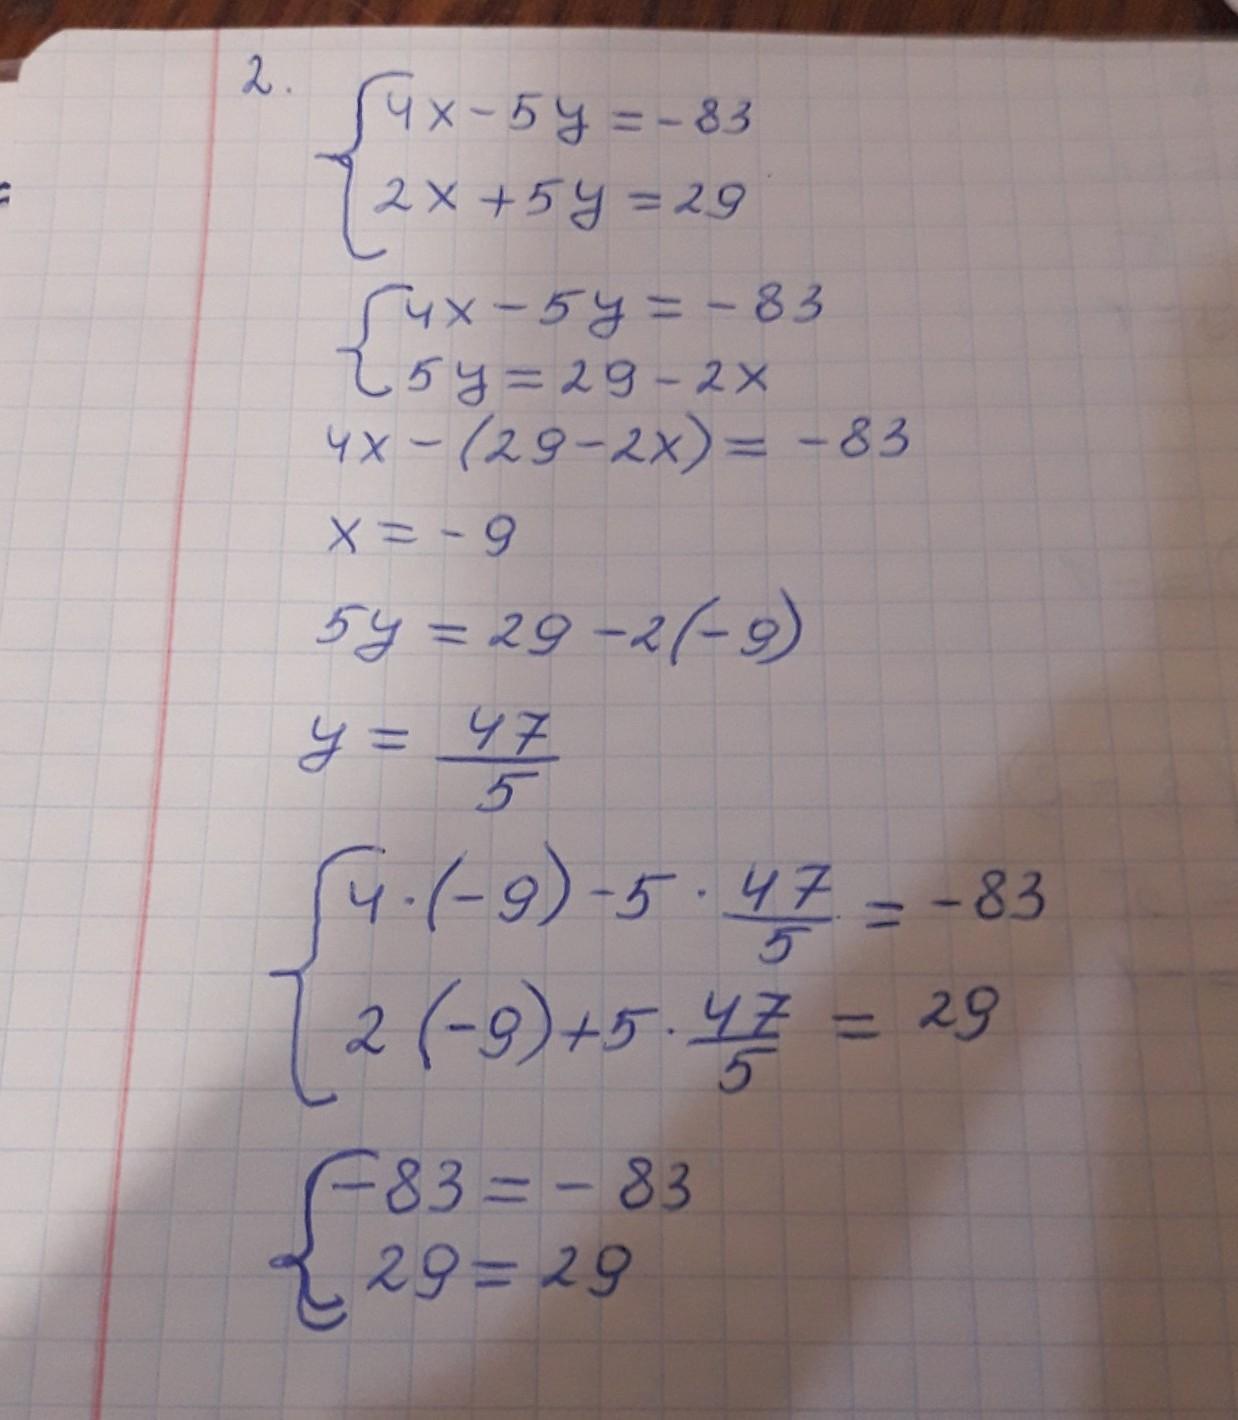 2.
{4x - 5y = -83
2x + 5y = 29
{4x - 5y = - 83
5y = 29 - 2x
4x - (29 - 2x) = -83
x = - 9
5y = 29 - 2(-9)
y = 47/5
{4 · (-9) - 5 · 47/5 = -83
2 (-9) + 5 · 47/5 = 29
{-83 = - 83
29 = 29